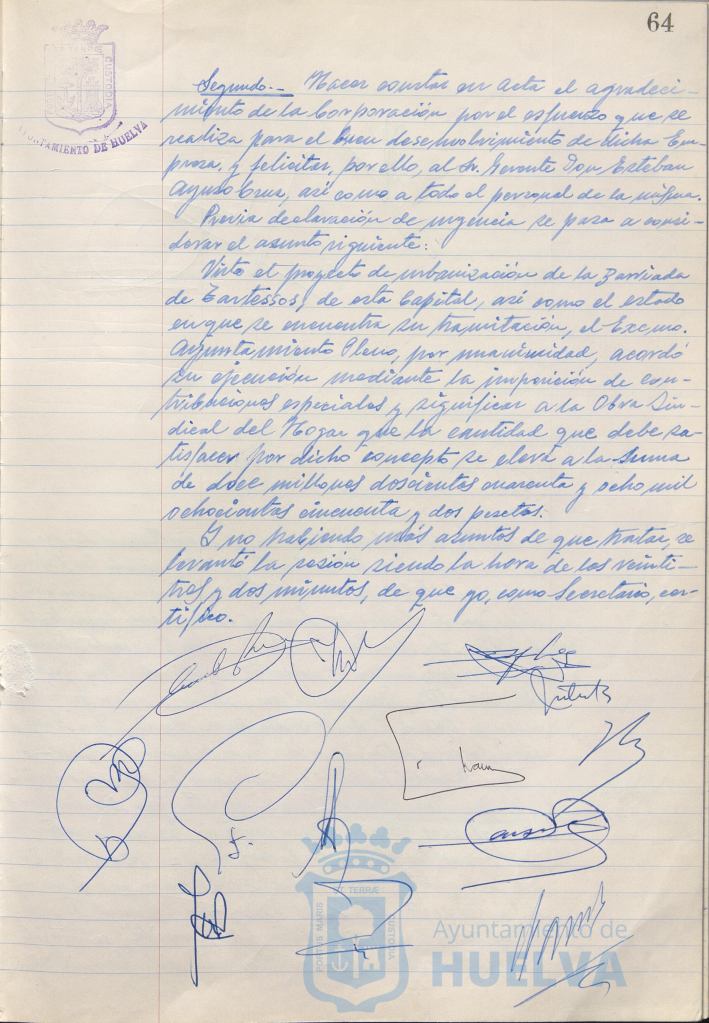 64
AYUNTAMIENTO DE HUELVA
Segundo.- Hacer constar en Acta el agradeci-
miento de la Corporación por el esfuerzo que se
realiza para el buen desenvolvimiento de dicha Em-
presa, y felicitar, por ello, al Sr. Gerente Don Esteban
Ayuso Cruz, así como a todo el personal de la misma.
Previa declaración de urgencia se pasa a consi-
derar el asunto siguiente:
Visto el proyecto de urbanización de la Barriada
de Tartessos, de esta Capital, así como el estado
en que se encuentra su tramitación, el Excmo.
Ayuntamiento Pleno, por unanimidad, acordó
su ejecución mediante la imposición de con-
tribuciones especiales y significar a la Obra Sin-
dical del Hogar que la cantidad que debe sa-
tisfacer por dicho concepto se eleva a la suma
de doce millones doscientas cuarenta y ocho mil
ochocientas cincuenta y dos pesetas.
Y no habiendo más asuntos de que tratar, se
levantó la sesión siendo la hora de las veinti-
tres y dos minutos, de que yo, como Secretario, cer-
tifico.
PORTUS MARIS ET TERRÆ CUSTODIA
Ayuntamiento de
HUELVA